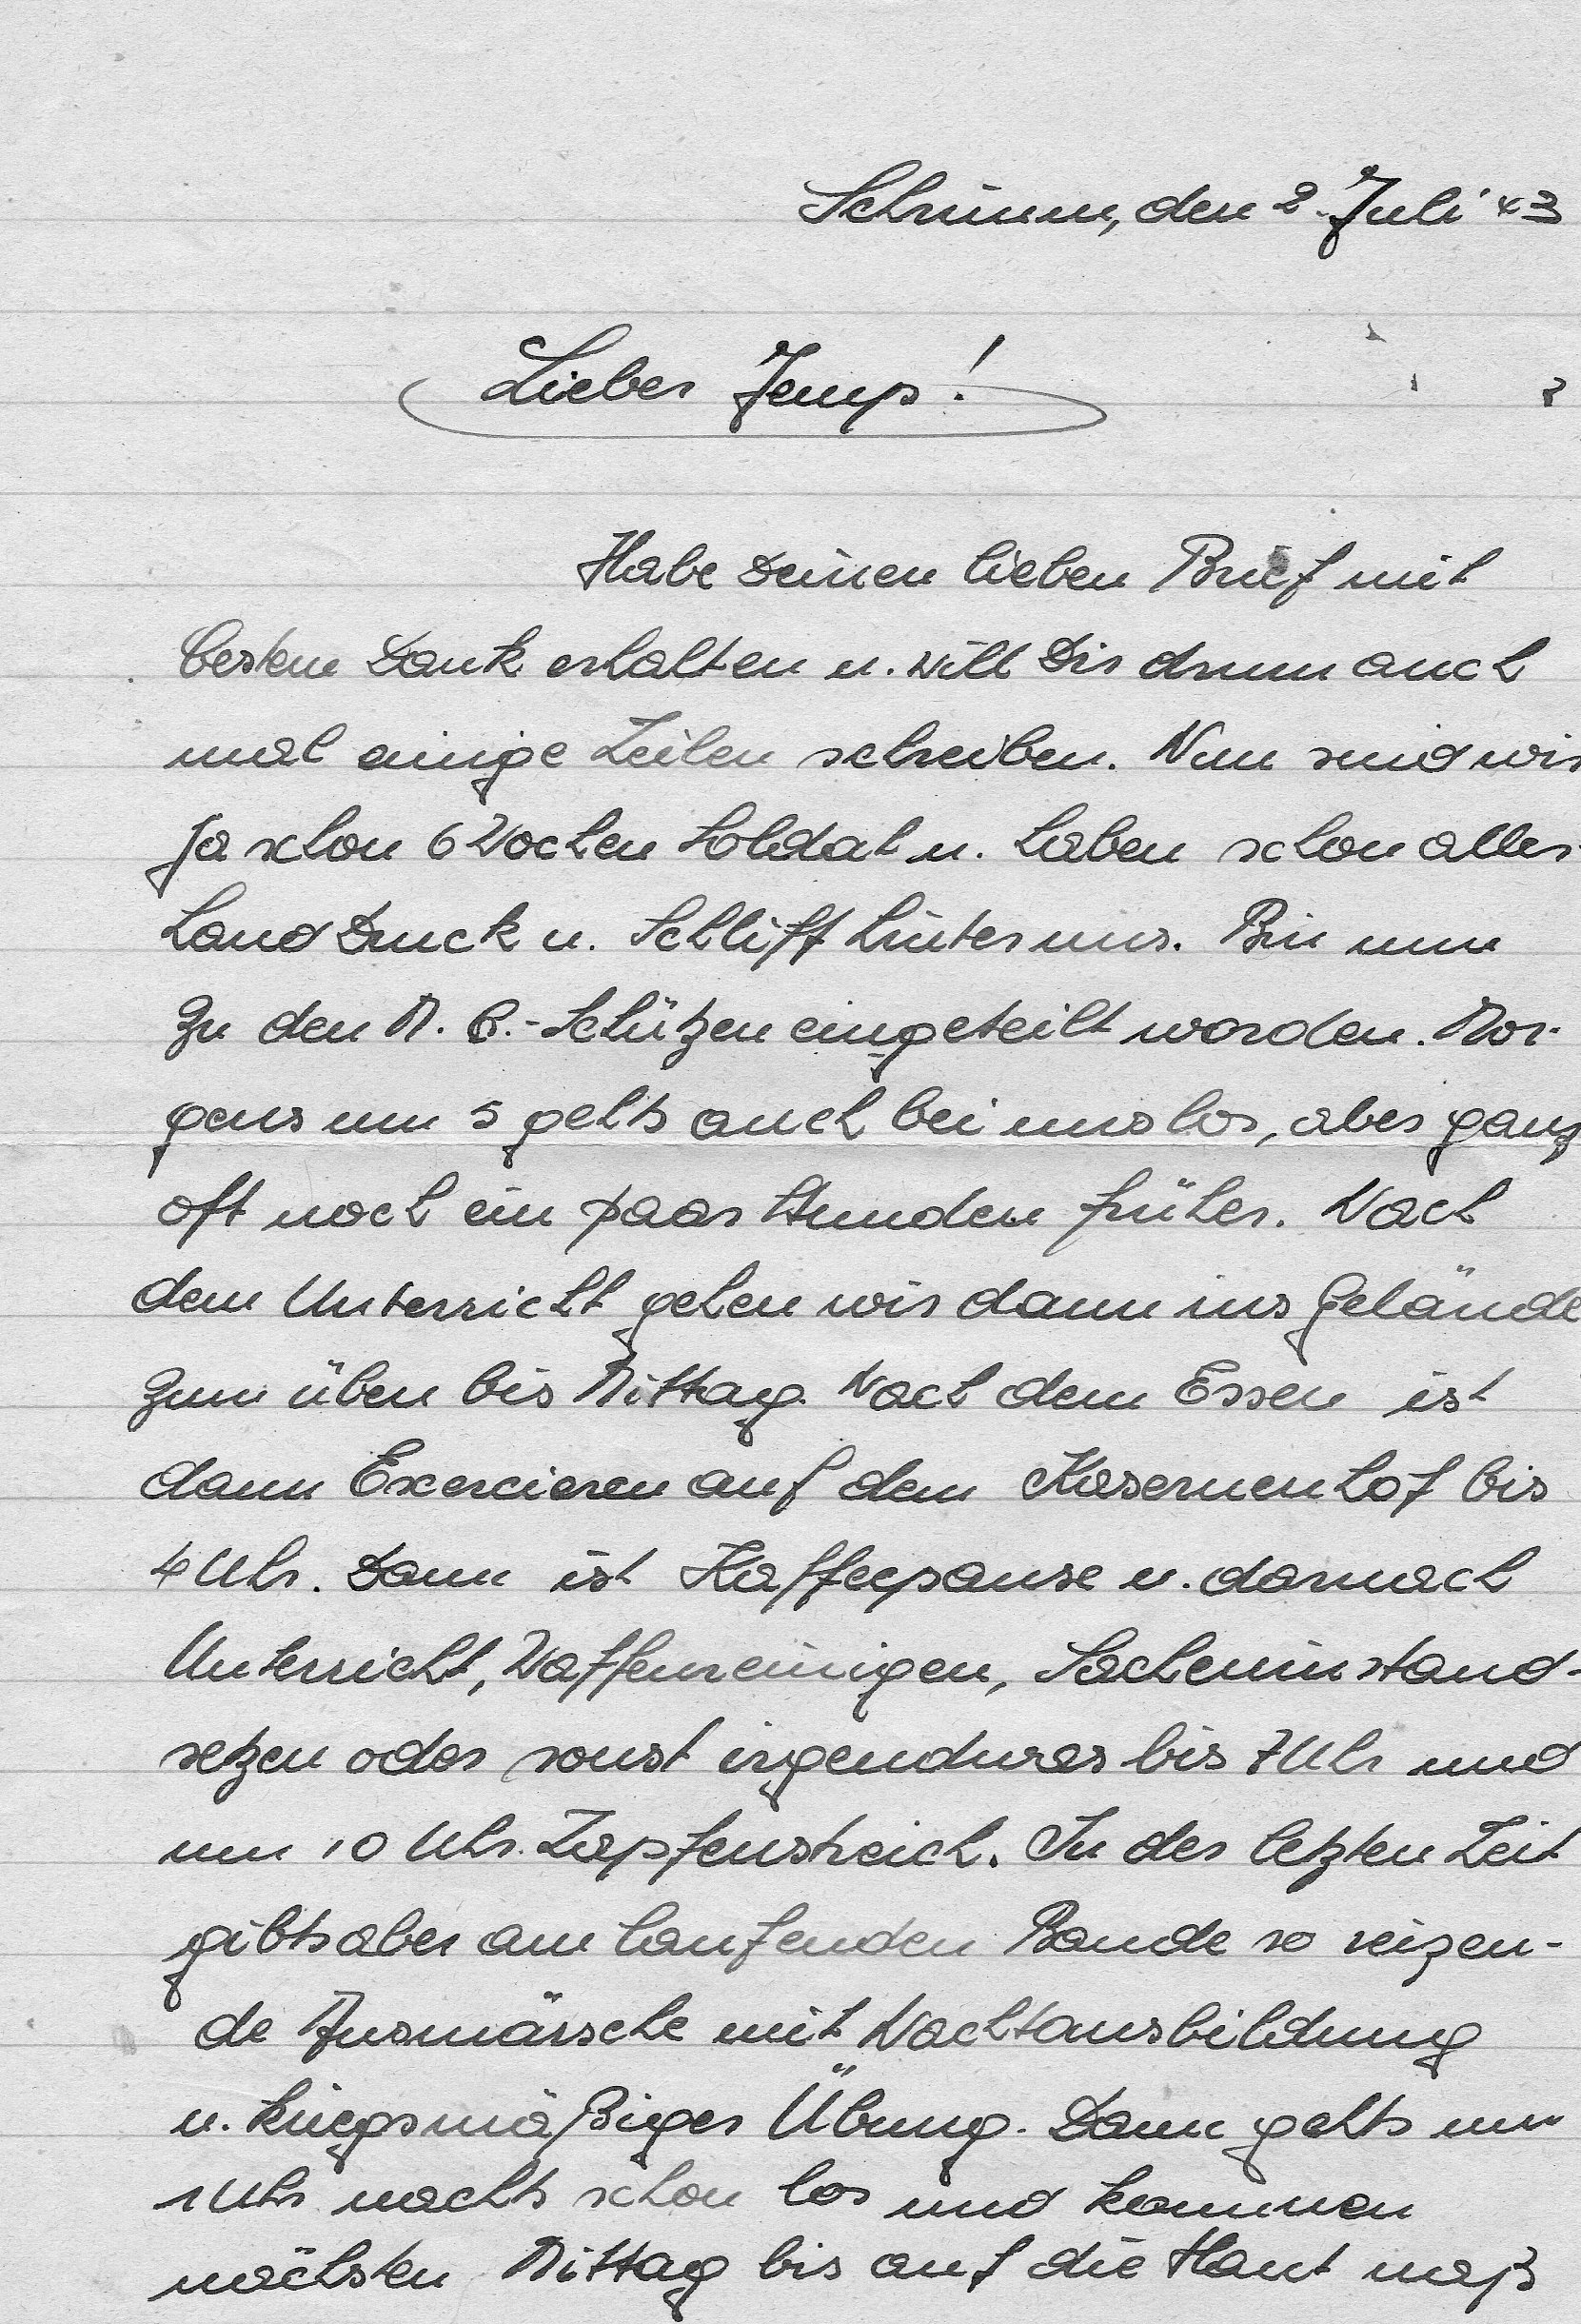 Schrimm, den 2. Juli 43
Lieber Jemp!
Habe Deinen lieben Brief mit
bestem Dank erhalten u. will Dir drum auch
mal einige Zeilen schreiben. Nun sind wir
ja schon 6 Wochen Soldat u. haben schon aller-
hand Druck u. Schliff hinter uns. Bin nun
zu den M. G.-Schützen eingeteilt worden. Mor-
gens um 5 gehts auch bei uns los, aber ganz
oft noch ein paar Stunden früher. Nach
dem Unterricht gehen wir dann ins Gelände
zum üben bis Mittag. Nach dem Essen ist
dann Exercieren auf dem Kasernenhof bis
4 Uhr. Dann ist Kaffeepause u. darnach
Unterricht, Waffenreinigen, Sacheninstand-
setzen oder sonst irgendwas bis 7 Uhr und
um 10 Uhr Zapfenstreich. In der letzten Zeit
gibts aber am laufenden Bande so reizen-
de Ausmärsche mit Nachtausbildung
u. kriegsmäßiger Übung. Dann gehts um
1 Uhr nachts schon los und kommen
nächsten Mittag bis auf die Haut naß